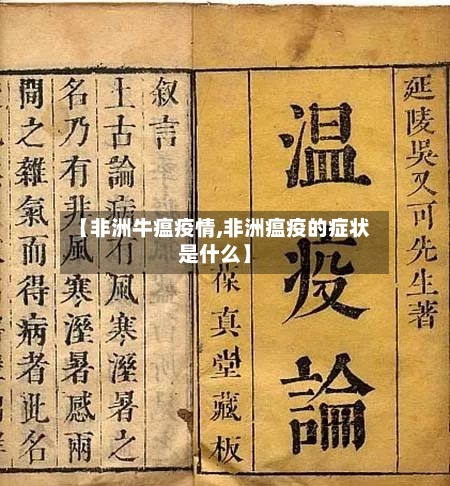 延陵吳又可先生著
温疫論
葆真堂藏板
叙言
上古論病有風寒溼暑之
名乃有非風寒溼暑感兩
間之雜氣而得病者此名
【非洲牛瘟疫情,非洲瘟疫的症状
是什么】